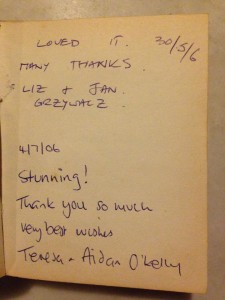 LOVED IT. 30/5/6
MANY THANKS.
LIZ & JAN
GRZYWACZ.
4/7/06
Stunning!
Thank you so much
very best wishes
Teresa & Aidan O'Kelly